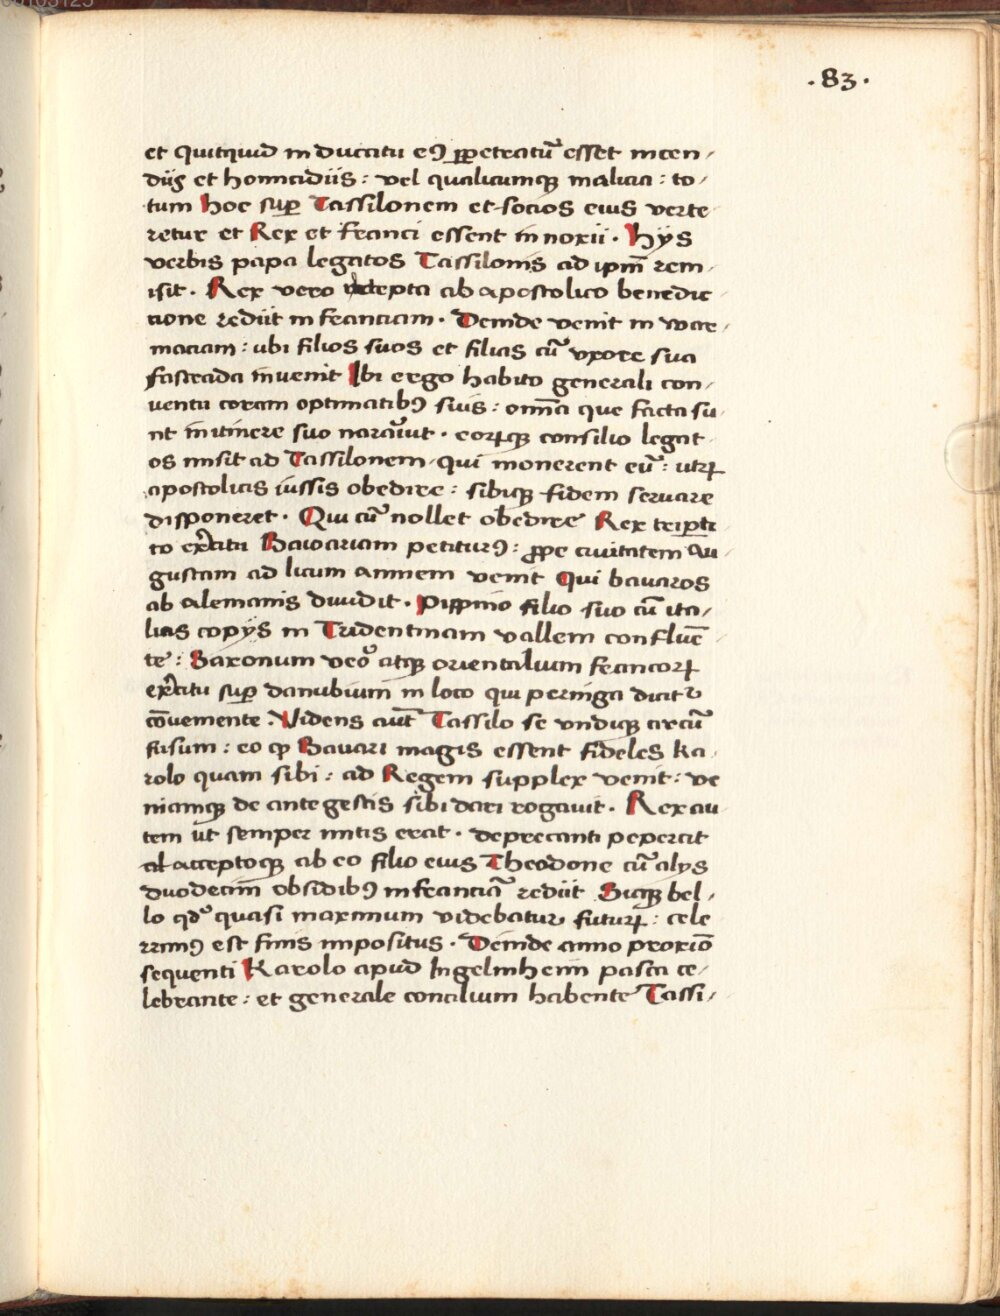 .83.
et quitquid in ducatu eꝰ ꝑpetratū esset incen/
diis et homicidiis: vel qualicumqꝫ malicia: to/
tum hoc suꝑ Tassilonem et socios eius verte
retur et Rex et franci essent innoxii. Hys
verbis papa legatos Tassilonis ad ipm̄ rem/
isit. Rex vero accepta ab apostolico benedic
tione rediit in franciam. Deinde venit in wor/
maciam: ubi filios suos et filias cū vxore sua
fastrada invenit Ibi ergo habito generali con/
ventu coram optimatibꝰ suis: om̄ia que facta su/
nt in itinere suo naraūit. eorꝝqꝫ consilio legat/
os misit ad Tassilonem. qui monerent eū: utrꝝ
apostolicis iussis obedire: sibiqꝫ fidem servare
disponeret. Qui cū nollet obedire Rex triꝑti
to exercitu Bawariam petiturꝰ: ꝓpe civitatem Au/
gustam ad licum amnem venit Qui bavaros
ab alemanis dividit. Pippino filio suo cū ita/
lias copys in Tridentinam vallem confluē/
te: Saxonum veo᷒ atqꝫ orientalium francorꝝ
exercitu suꝑ danubium in loco qui peringa dicit᷑
cōveniente. Videns aut̄ Tassilo se vndiqꝫ circū
fusum: eo ꝙ Bavari magis essent fideles ka/
rolo quam sibi: ad Regem supplex venit: ve
niamqꝫ de ante gestis sibi dari rogavit. Rex au/
tem ut semper mitis erat. deprecanti pepercit
acceptoqꝫ ab eo filio eius Theodone cū alys
duodecim obsidibꝰ in franciā rediit Sicqꝫ bel/
lo qd̄ quasi maximum videbatur futurꝝ: cele
rrimꝰ est finis impositus. Deinde anno proxīo
sequenti Karolo apud Ingelinheim pasca ce/
lebrante: et generale concilium habente Tassi/